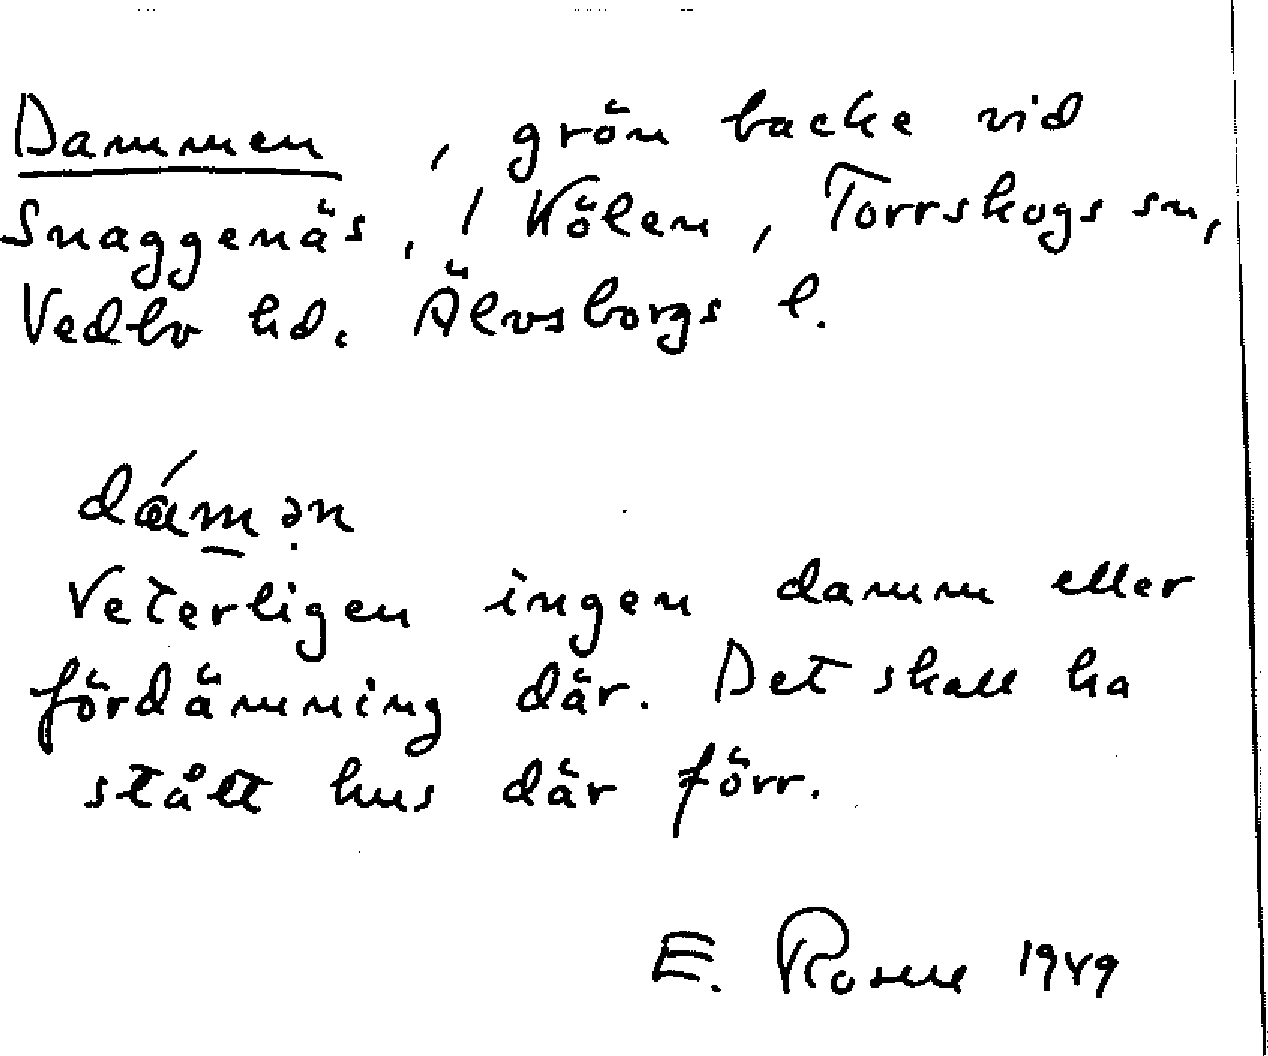 Dammen, grön backe vid
Snaggenäs, 1 Kölen, Torrskogs sn,
Vedbo hd. Älvsborgs l.
dám̲ə̣n
Veterligen ingen damm eller
fördämning där. Det skall ha
stått hus där förr.
E. Rosell 1949